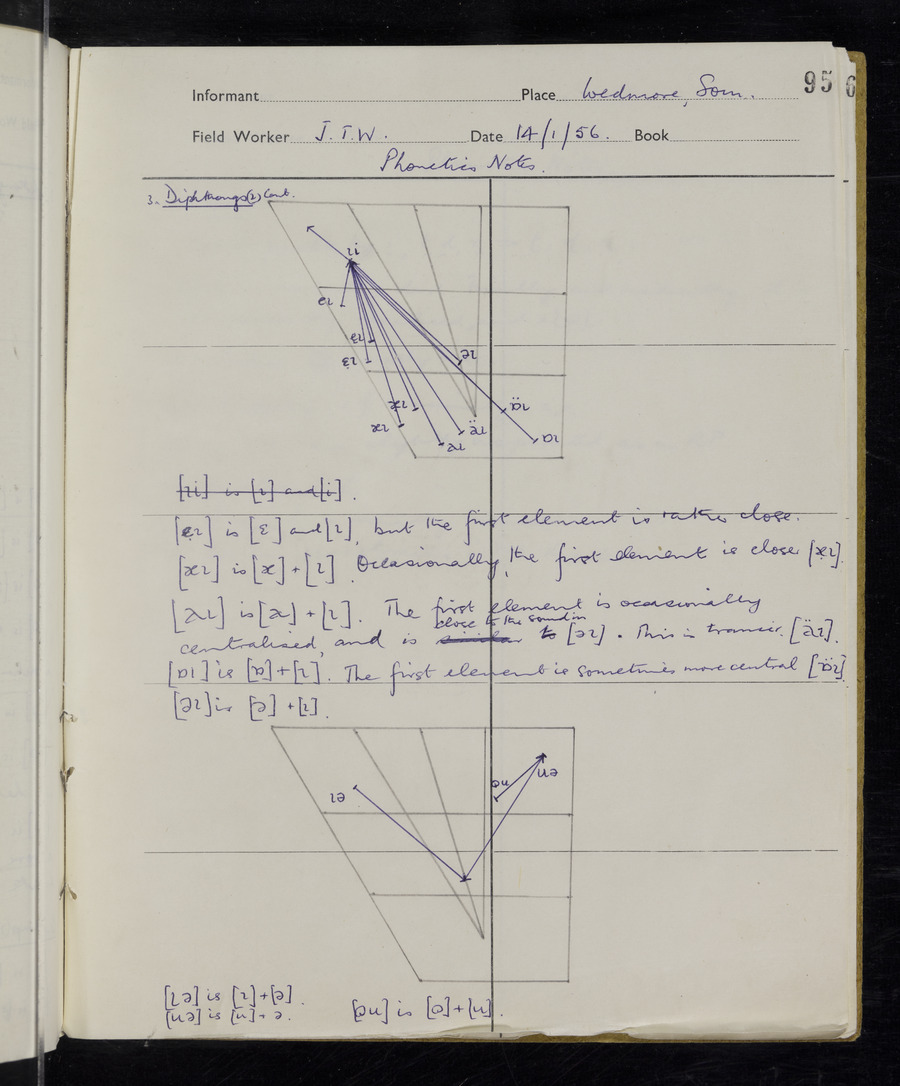 95 6
Informant Place Wedmore, Som.
Field Worker J.T.W. Date 14/1/56. Book
Phonetics Notes.
3. Diphthongs (2) Cont.
ɪi
eɪ
ɛɪ
ɛ̣ɪ
əɪ
æ̣ɪ
æɪ
aɪ
äɪ
ɒ̈ɪ
ɒɪ
[ɪi] is [ɪ] and [i].
[ɛɪ] is [ɛ] and [ɪ], but the first element is rather close.
[æɪ] is [æ] + [ɪ]. Occasionally, the first element is close [æ̣ɪ].
[aɪ] is [a] + [ɪ]. The first element is occasionally
close to the sound in
centralised, and is similar to [əɪ]. This is transcr. [äɪ].
[ɒɪ] is [ɒ] + [ɪ]. The first element is sometimes more central [ɒ̈ɪ].
[əɪ] is [ə] + [ɪ].
ɪə
əu
uə
[ɪə] is [ɪ] + [ə].
[uə] is [u] + ə.
[əu] is [ə] + [u].